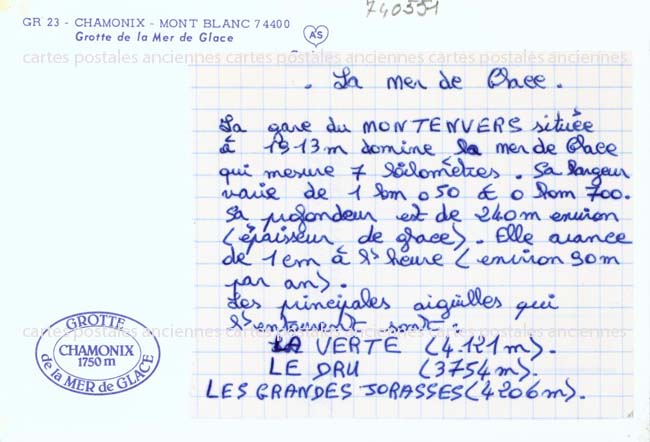 GR 23 - CHAMONIX - MONT BLANC 74400
Grotte de la Mer de Glace
AS
740551
cartes postales anciennes cartes postales anciennes cartes postales anciennes
. La mer de Glace.
La gare du MONTENVERS située
à 1913 m domine la mer de Glace
qui mesure 7 kilomètres. Sa largeur
varie de 1 km 050 à 0 km 700.
Sa profondeur est de 240 m environ
(épaisseur de glace). Elle avance
de 1 cm à l'heure (environ 90 m
par an).
Les principales aigüilles qui
l'entourent sont :
LA VERTE (4.121 m).
LE DRU (3754 m).
LES GRANDES JORASSES (4206 m).
cartes postales anciennes cartes postales anciennes cartes postales anciennes
GROTTE
CHAMONIX
1750 m
de la MER de GLACE